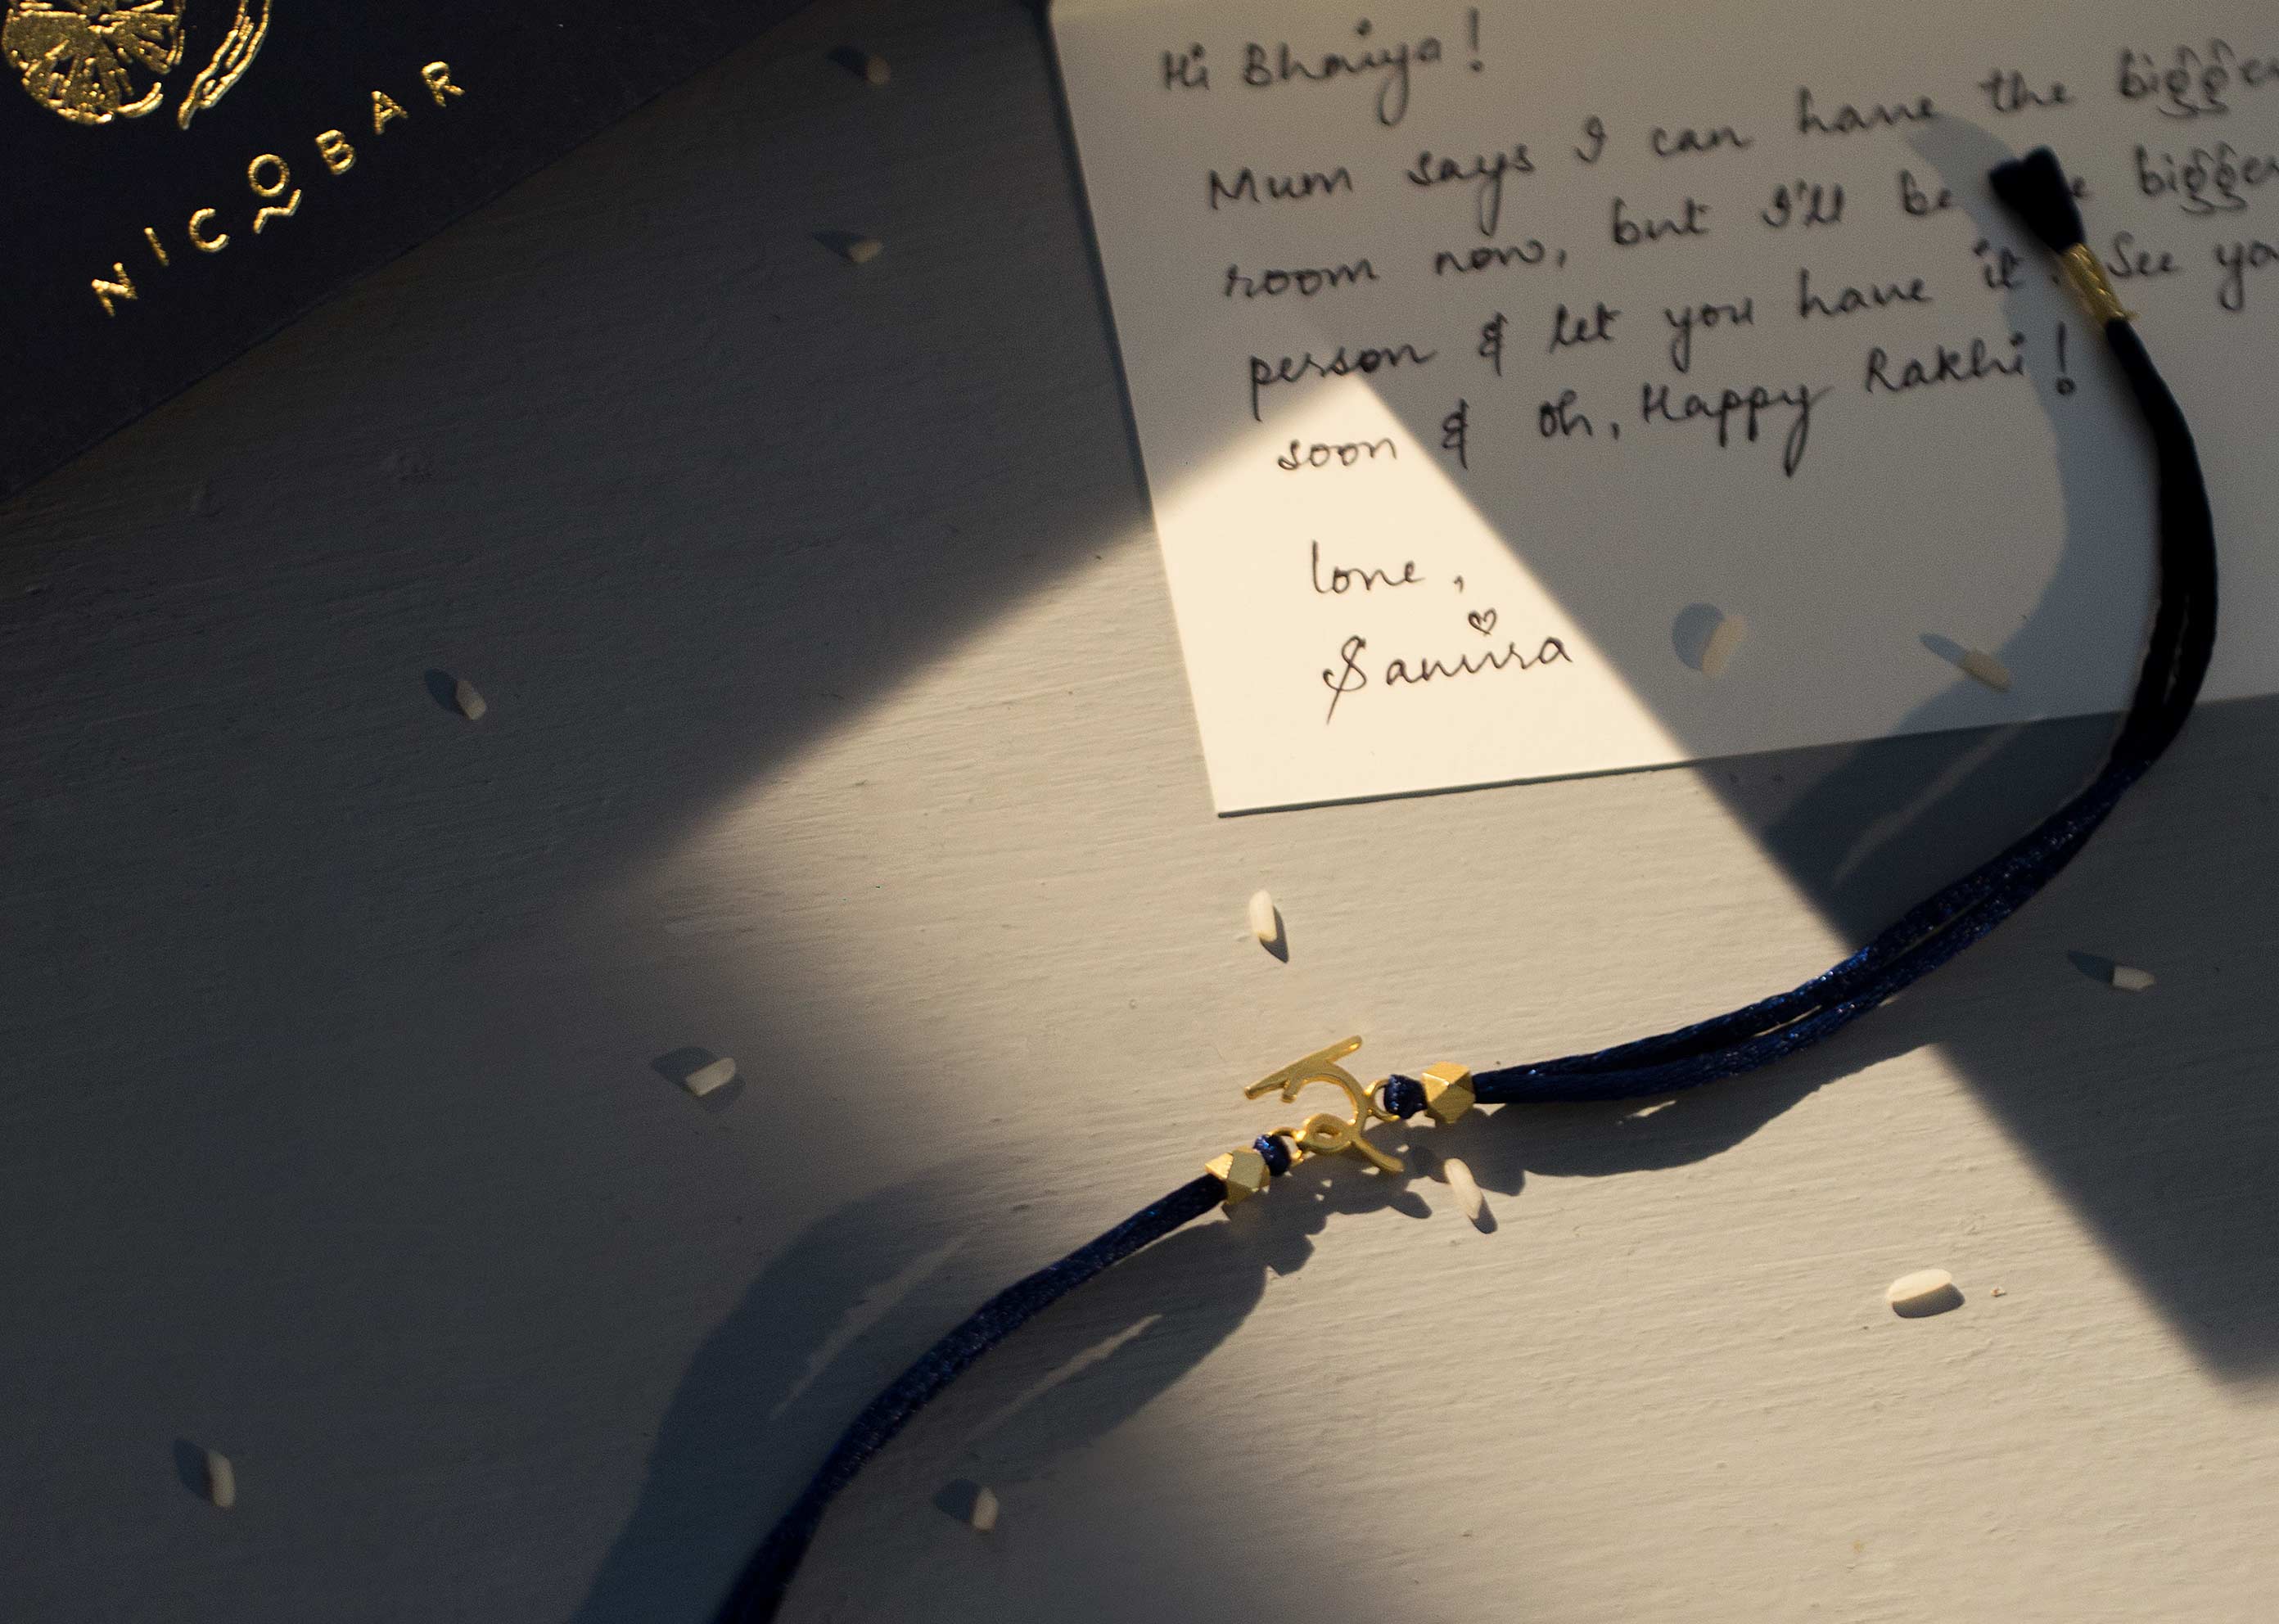 NICOBAR
Hi Bhaiya!
Mum says I can have the bigger
room now, but I'll be bigger
person & let you have it. See yo
soon & oh, Happy Rakhi!
love,
Sanira